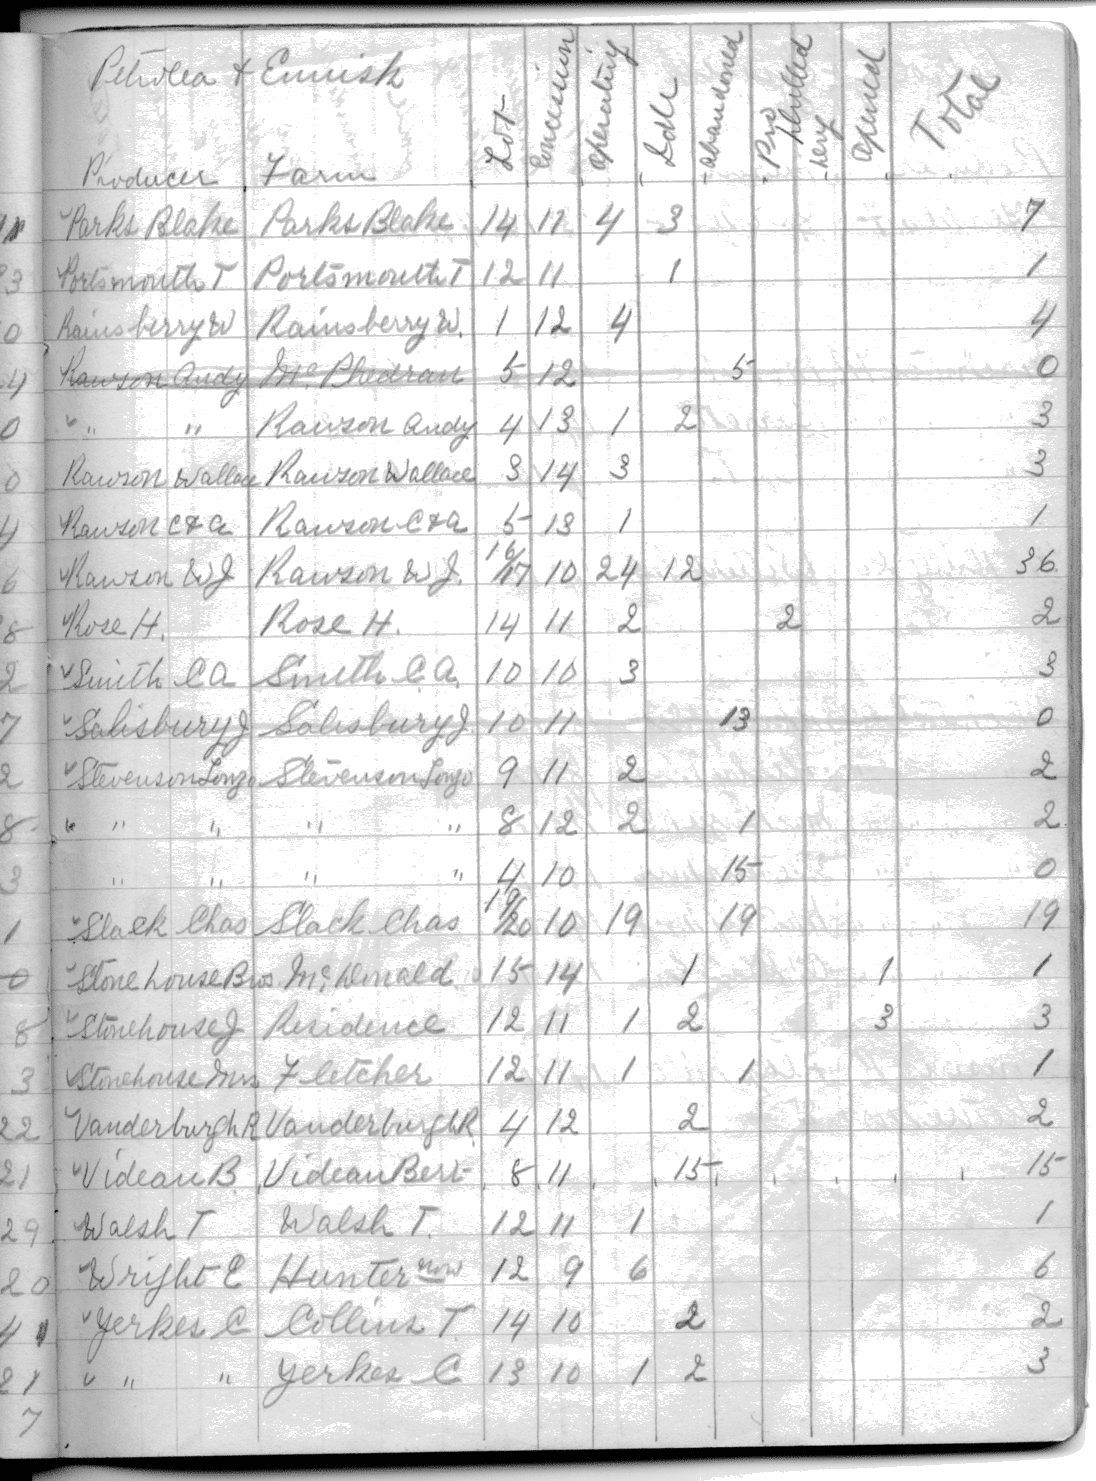 Petrolea & Ennisk
Producer Farm Lot Concession Operating Idle abandoned Pro Drilled very opened Total
Parks Blake Parks Blake 14 11 4 3 7
3 Portsmouth T Portsmouth T 12 11 1 1
0 Rainsberry W Rainsberry W. 1 12 4 4
4 Rawson Andy Mc Phedran 5 12 5 0
0 " " Rawson Andy 4 13 1 2 3
0 Rawson Wallace Rawson Wallace 3 14 3 3
4 Rawson C & A Rawson C & A 5 13 1 1
6 Rawson W J Rawson W J. 16/17 10 24 12 36
8 Rose H. Rose H. 14 11 2 2 2
2 Smith C A Smith C. A. 10 10 3 3
7 Salisbury J Salisbury J 10 11 13 0
2 Stevenson Lonzo Stevenson Lonzo 9 11 2 2
8 " " " " 8 12 2 1 2
3 " " " " 4 10 15 0
1 Slack Chas Slack Chas 19/20 10 19 19 19
0 Stonehouse Bros McDonald 15 14 1 1 1
8 Stonehouse J Residence 12 11 1 2 3 3
3 Stonehouse Mrs Fletcher 12 11 1 1 1
22 Vanderburgh R Vanderburgh R. 4 12 2 2
21 Videan B Videan Bert 8 11 15 15
29 Walsh T Walsh T. 12 11 1 1
20 Wright E Hunter now 12 9 6 6
41 Yerkes C Collins T 14 10 2 2
21 " " Yerkes C 13 10 1 2 3
7